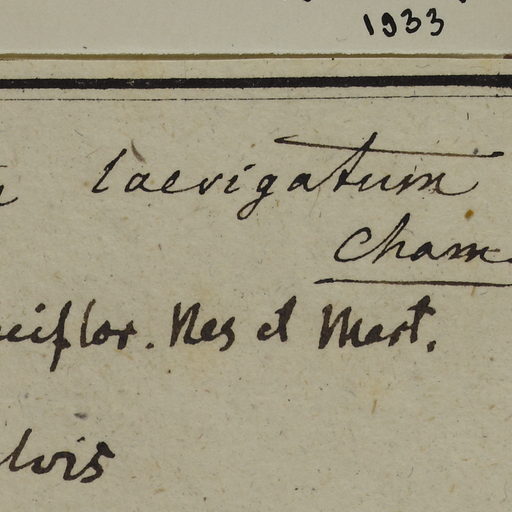 1933
laevigatum
Cham
ciflor. Nes et Mart.
lvis